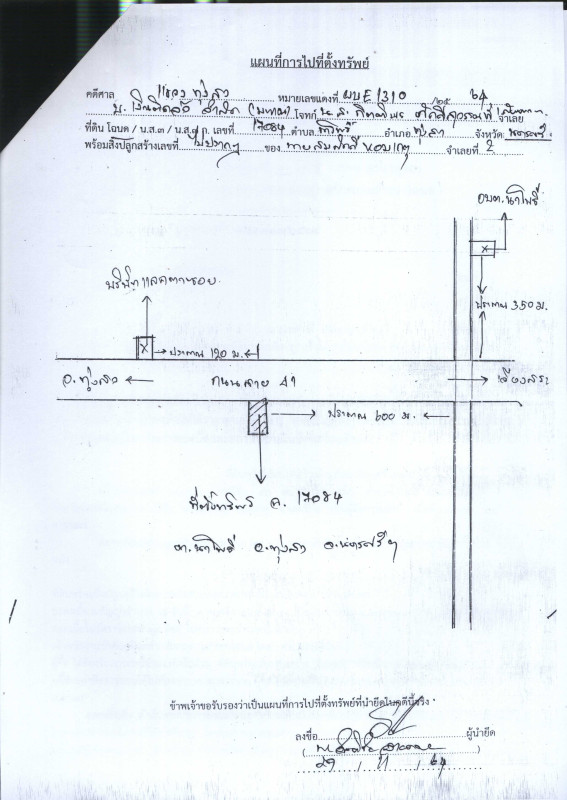 แผนที่การไปที่ตั้งทรัพย์
คดีศาล แขวงทุ่งสง หมายเลขแดงที่ ผบE 1310 /๒๕ 64
บ. เงินติดล้อ จำกัด (มหาชน) โจทก์ น.ส. จำเลย
ที่ดิน โฉนด / น.ส.๓ / น.ส.๓ ก. เลขที่ 17084 ตำบล นาโพธิ์ อำเภอ ทุ่งสง จังหวัด นครศรีฯ
พร้อมสิ่งปลูกสร้างเลขที่ ไม่ปรากฏ ของ นายสมศักดิ์ จำเลยที่ 2
อบต.นาโพธิ์
บริษัท
ประมาณ 350 ม.
ประมาณ 120 ม.
อ.ทุ่งสง ถนนสาย 41 เวียงสระ
ประมาณ 600 ม.
ที่ตั้งทรัพย์ ฉ. 17084
ต.นาโพธิ์ อ.ทุ่งสง จ.นครศรีฯ
ข้าพเจ้าขอรับรองว่าเป็นแผนที่การไปที่ตั้งทรัพย์ที่นำยึดในคดีนี้จริง
ลงชื่อ ผู้นำยึด
29 / 11 / 64